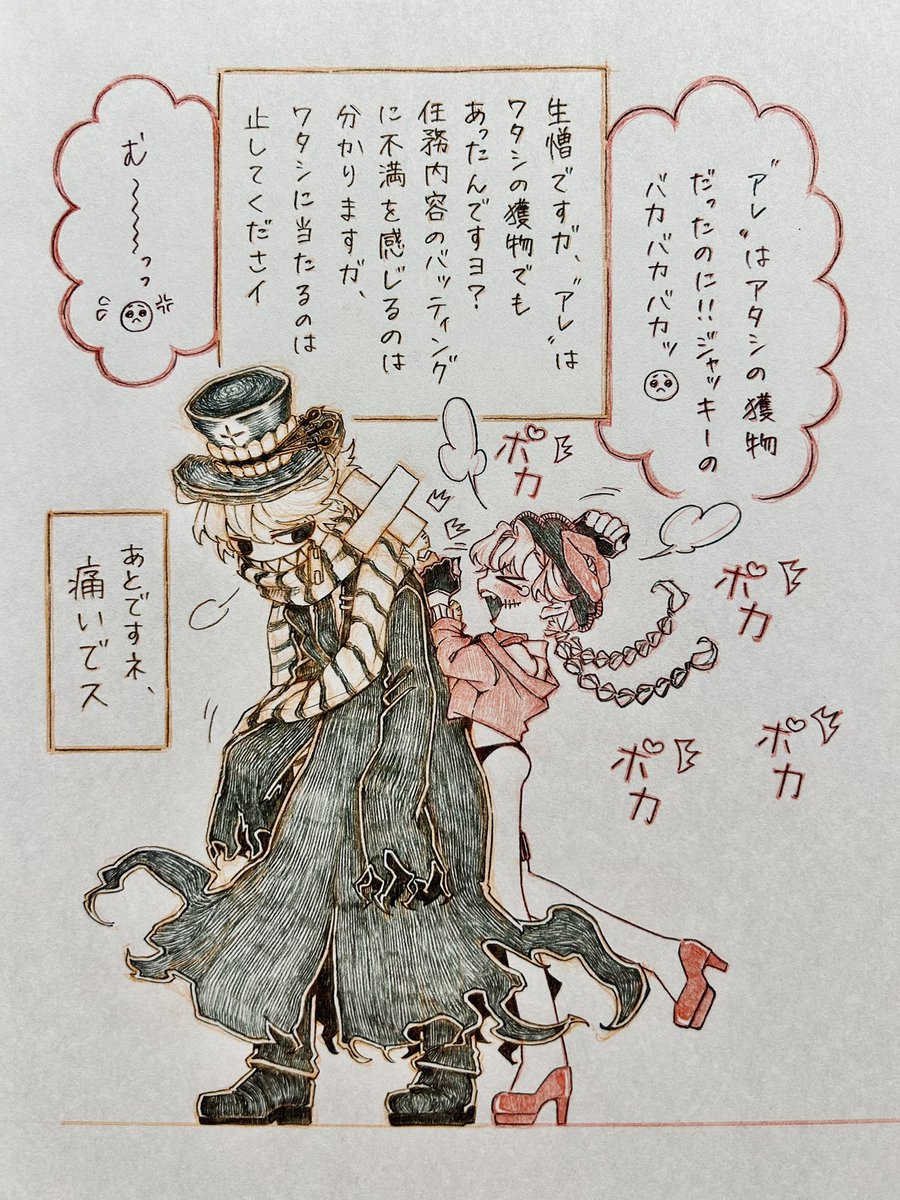 〝アレ〟はアタシの獲物
だったのに!!ジャッキーの
バカバカバカッ🥺
生憎ですガ、〝アレ〟は
ワタシの獲物でも
あったんですヨ?
任務内容のバッティング
に不満を感じるのは
分かりますガ、
ワタシに当たるのは
止してくださイ
む〜〜〜っっ
あとですネ、
痛いでス
ポカ
ポカ
ポカ
ポカ